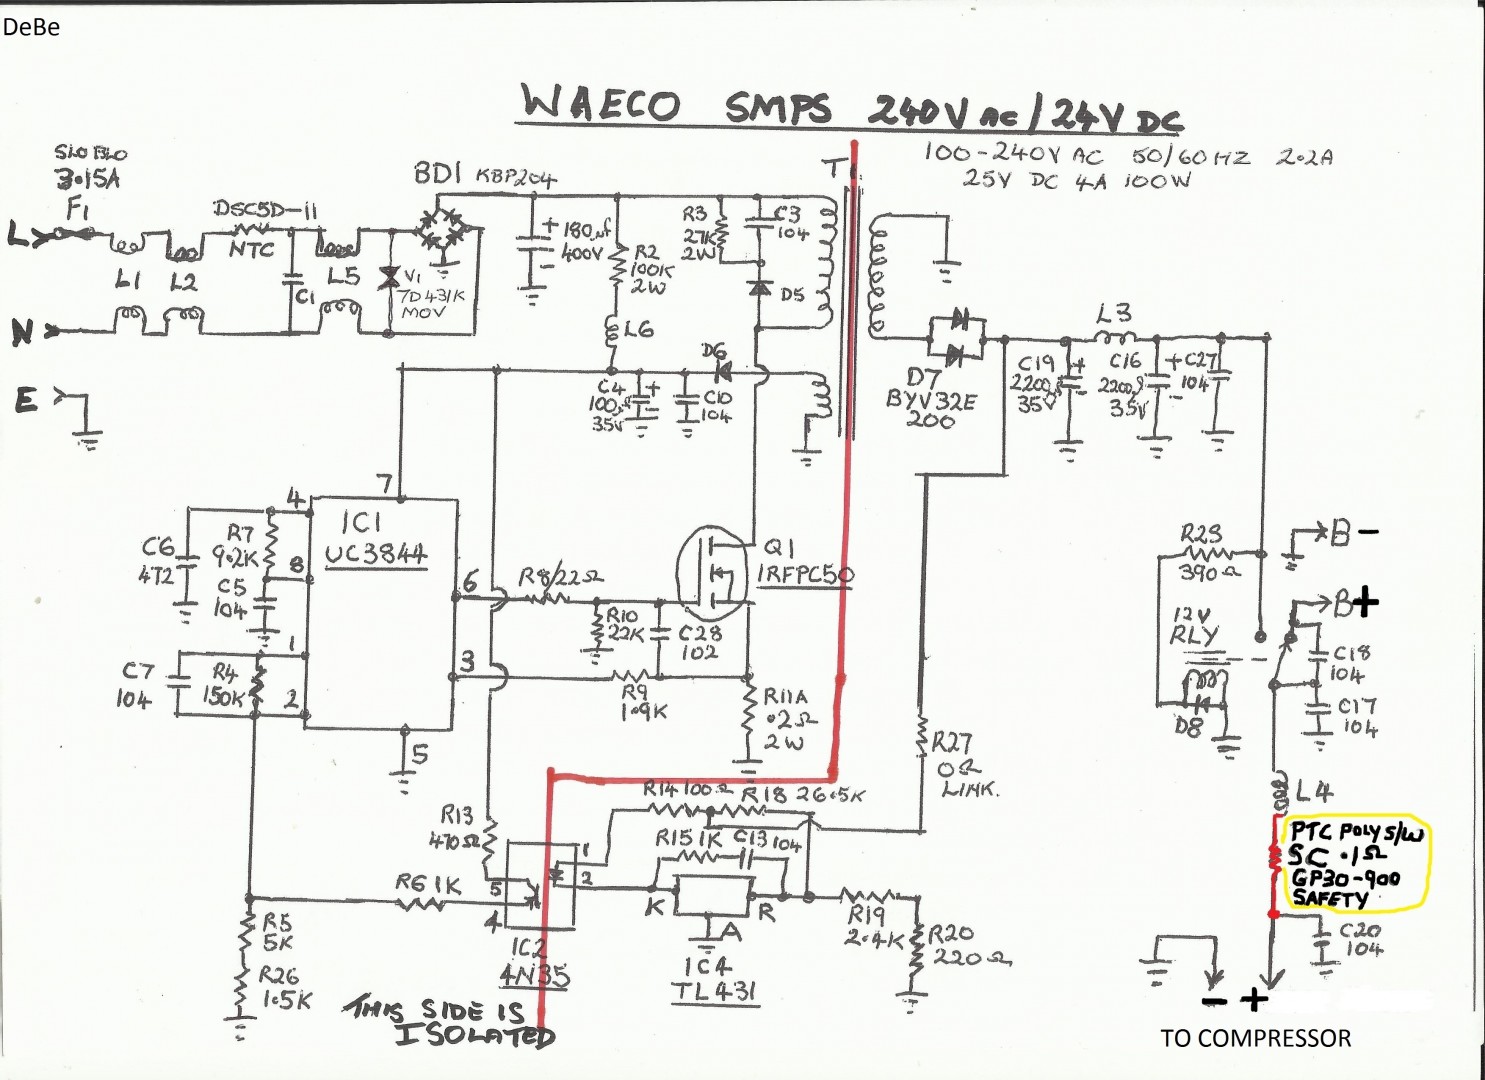 DeBe
WAECO SMPS 240V AC/24V DC
100-240V AC 50/60HZ 2.2A
25V DC 4A 100W
SLO BLO
3.15A
F1
L
DSC5D-11
NTC
L1
L2
C1
L5
V1
7D431K
MOV
N
E
BD1 KBP204
+
180µf
400V
R2
100K
2W
L6
R3
27K
2W
C3
104
D5
T1
D6
C4
100µf
35V
+
C10
104
D7
BYV32E
200
C19
2200µf
35V
+
L3
C16
2200µf
35V
+
C27
104
7
4
IC1
UC3844
8
1
2
6
3
5
C6
472
R7
9.2K
C5
104
C7
104
R4
150K
R8/22Ω
R10
22K
C28
102
R9
1.9K
Q1
IRFPC50
R11A
.2Ω
2W
R27
0Ω
LINK.
R25
390Ω
12V
RLY
D8
B-
B+
C18
104
C17
104
L4
PTC POLY S/W
SC .1Ω
GP30-900
SAFETY
C20
104
- +
TO COMPRESSOR
R13
470Ω
R6 1K
R5
5K
R26
1.5K
1
2
5
4
IC2
4N35
R14 100Ω
R18 26.5K
R15 1K
C13 104
K
R
A
IC4
TL431
R19
2.4K
R20
220Ω
THIS SIDE IS
ISOLATED